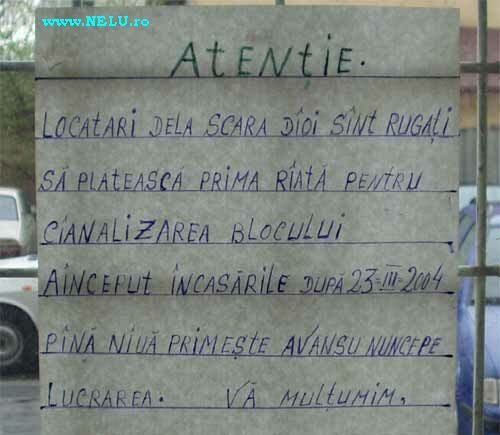 www.NELU.ro
ATENȚIE.
LOCATARI DELA SCARA DÎOI SÎNT RUGAȚI
SĂ PLATEASCĂ PRIMA RÎATĂ PENTRU
CÎANALIZAREA BLOCULUI
AÎNCEPUT ÎNCASĂRILE DUPĂ 23-III-2004
PÎNĂ NIUĂ PRIMEȘTE AVANSU NUNCEPE
LUCRAREA. VĂ MULȚUMIM.